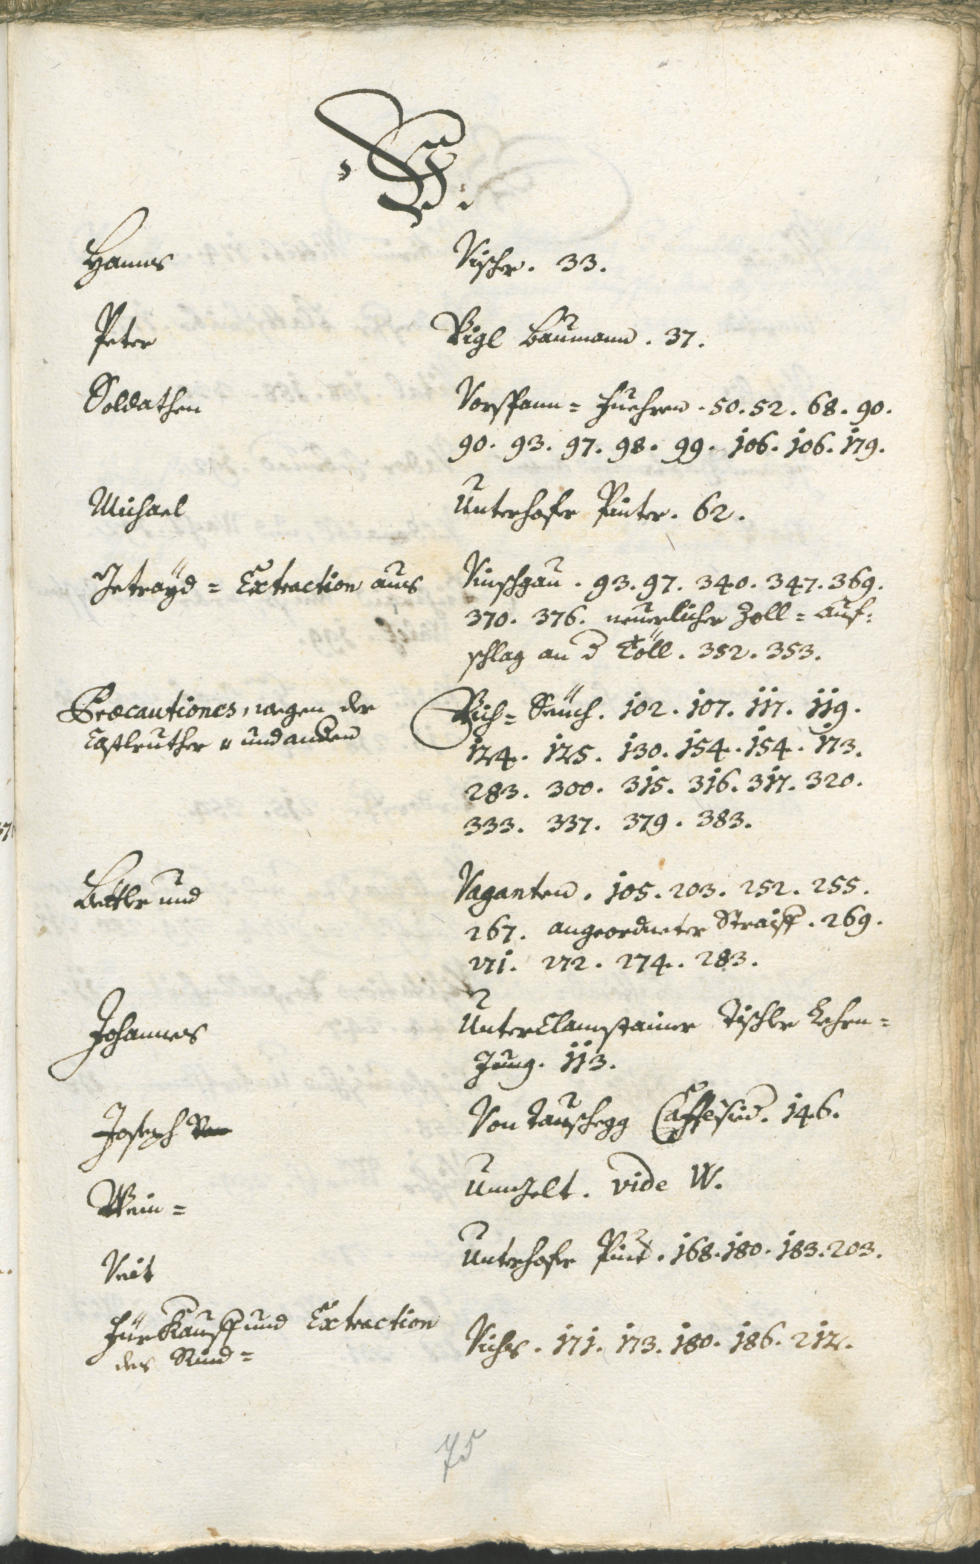 V.
Hannes Vischer. 33.
Peter Vigl Baumann. 37.
Soldathen Vorspann= Fuehren. 50. 52. 68. 90.
90. 93. 97. 98. 99. 106. 106. 179.
Michael Unterhofer Pinter. 62.
Getrayd= Extraction aus Vinschgau. 93. 97. 340. 347. 369.
370. 376. neuerlicher Zoll= Auf=
schlag an d Töll. 352. 353.
Præcautiones, wegen der Vich= Seuch. 102. 107. 117. 119.
Castlruther und andern 124. 125. 130. 154. 154. 173.
283. 300. 315. 316. 317. 320.
333. 337. 379. 383.
Bettler und Vaganten. 105. 203. 252. 255.
267. angeordneter Straiff. 269.
271. 272. 274. 283.
Johannes Unterclamstainer Tischler Lehrn=
Jung. 113.
Joseph Von Tauschegg Caffesied. 146.
Wein= Umgelt. vide W.
Veit Unterhofer Pint. 168. 180. 183. 203.
Für Kauff und Extraction
des Rind= Vichs. 171. 173. 180. 186. 212.
75